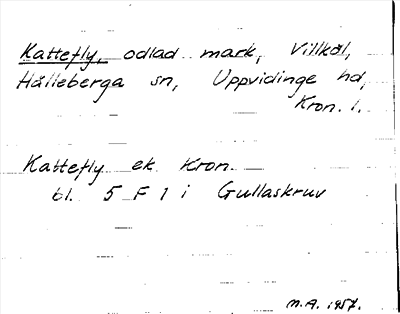 Kattefly, odlad mark, Villköl,
Hälleberga sn, Uppvidinge hd,
Kron. l.
Kattefly ek. Kron.
bl. 5 F 1 i Gullaskruv
M.A. 1957.